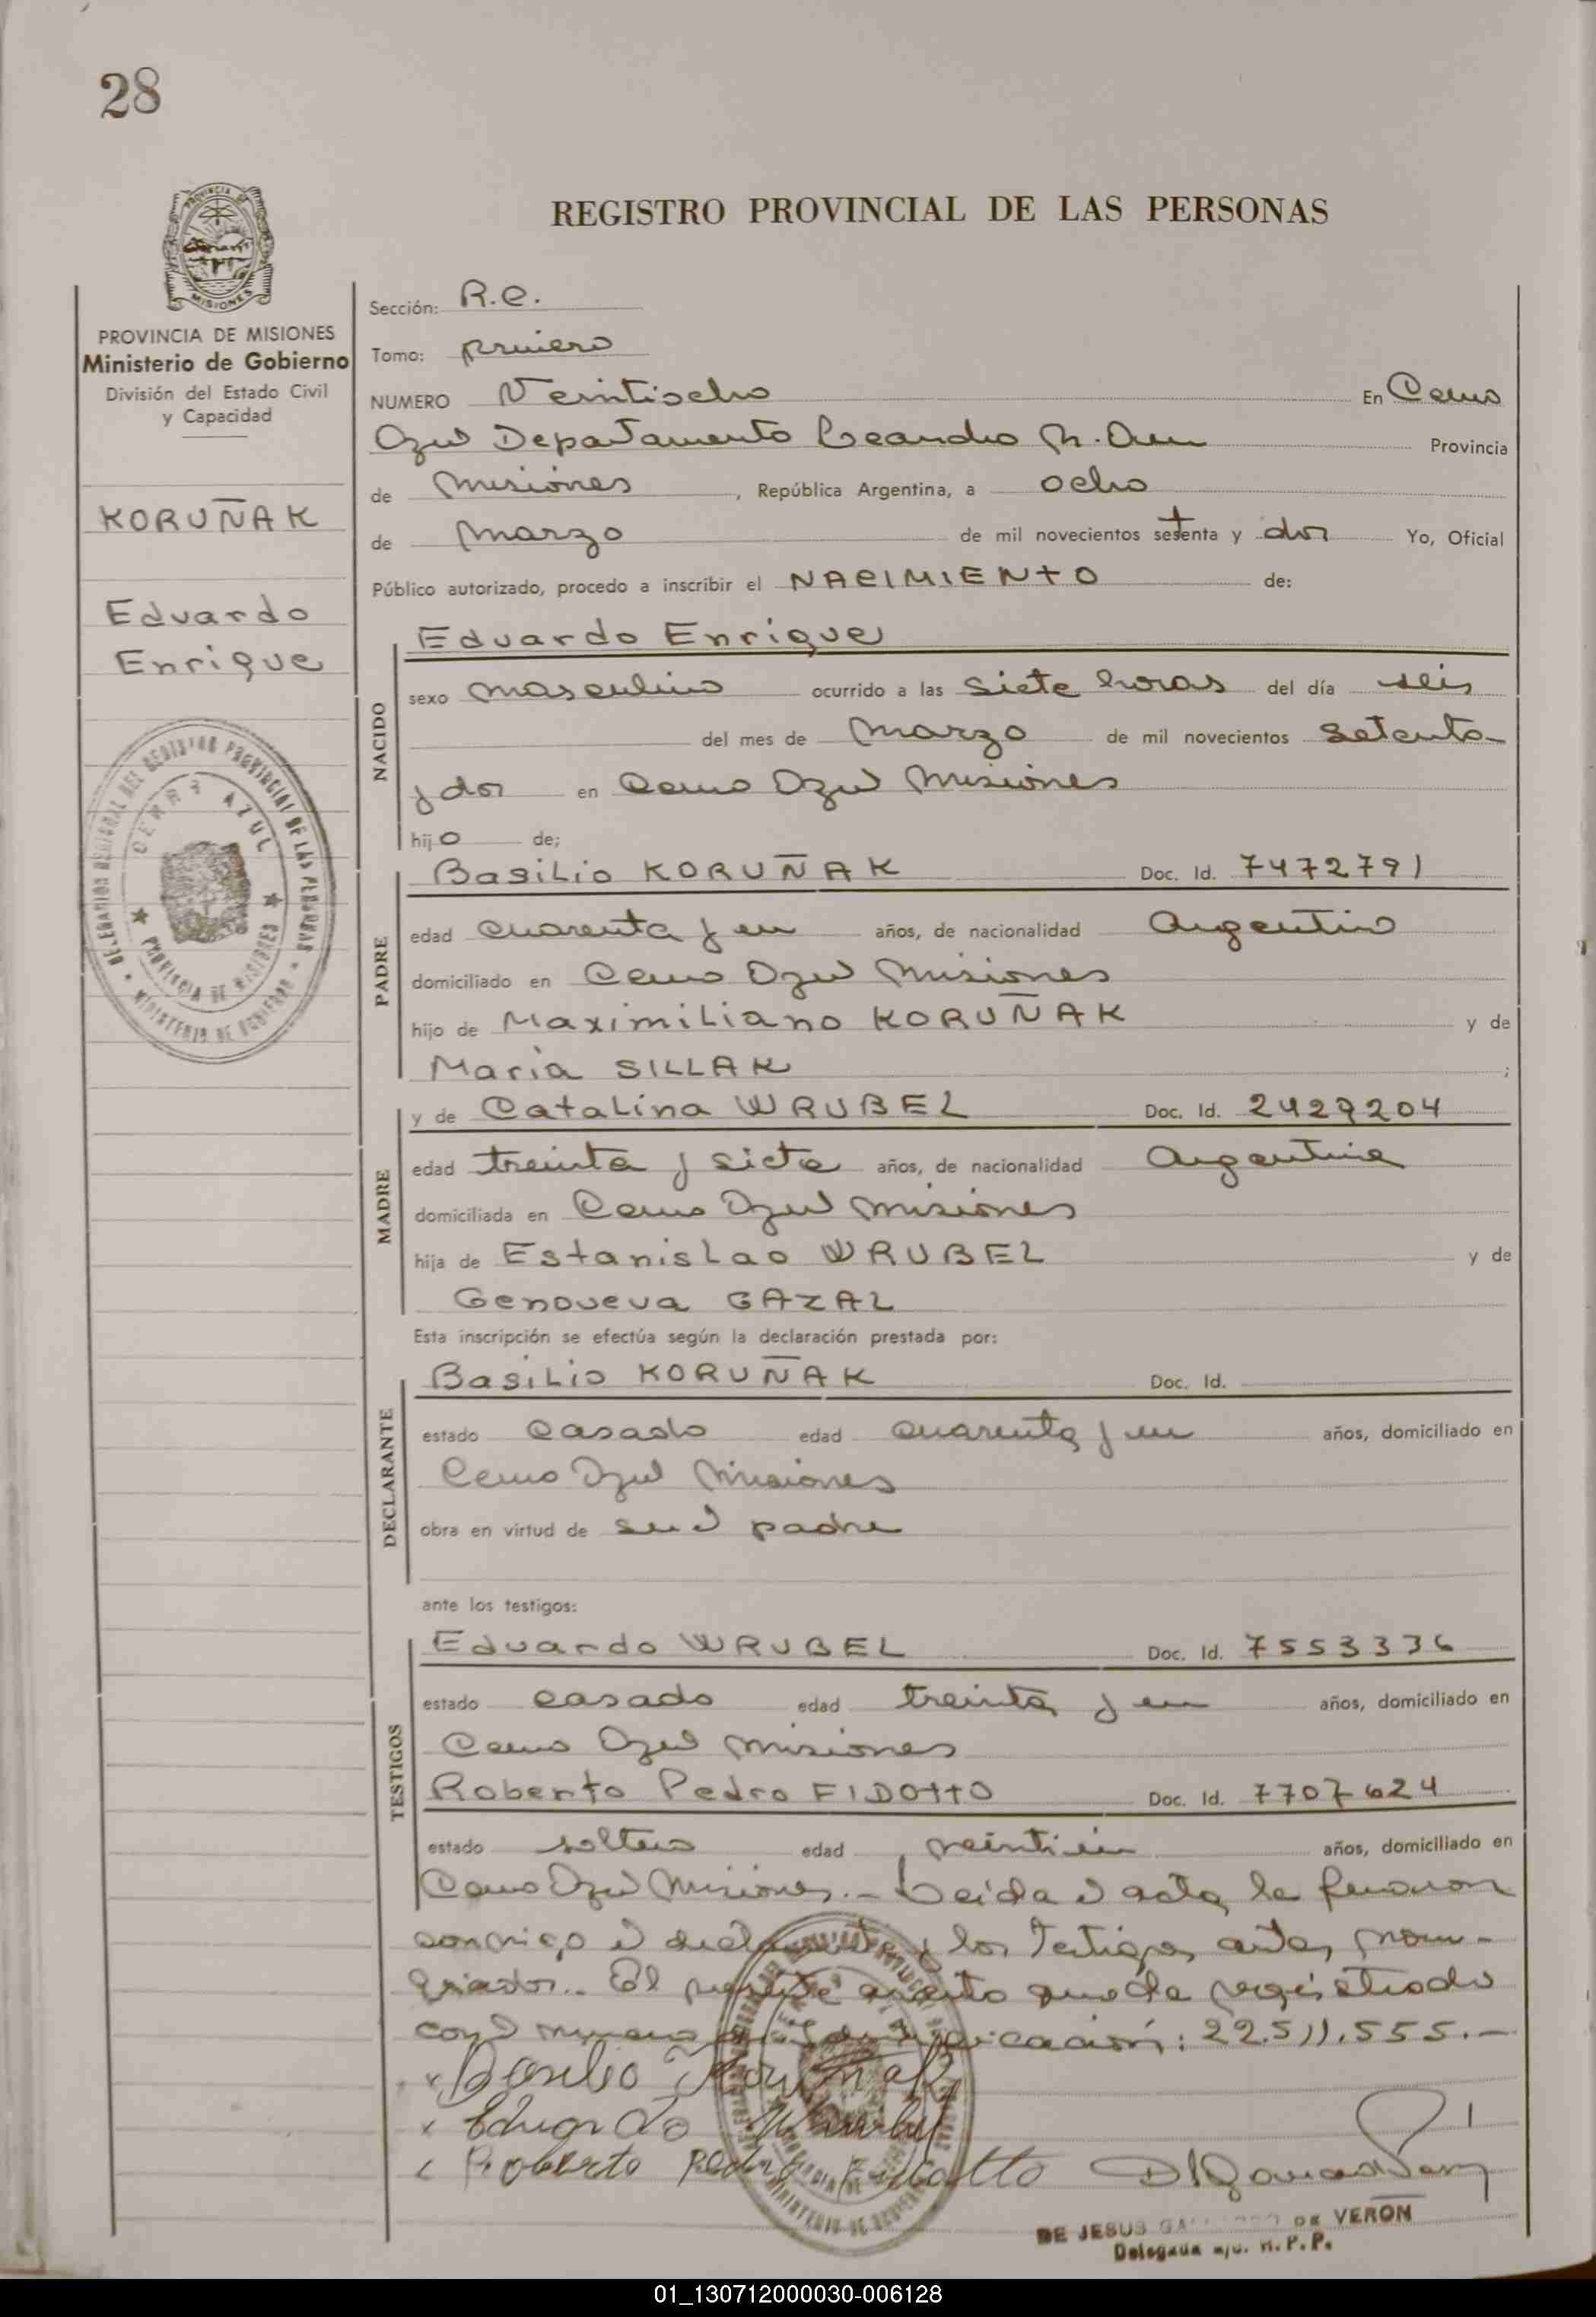 28
REGISTRO PROVINCIAL DE LAS PERSONAS
MISIONES
PROVINCIA DE MISIONES
Ministerio de Gobierno
División del Estado Civil
y Capacidad
KORUÑAK
Eduardo
Enrique
Sección: R.C.
Tomo: primero
NUMERO Veintiocho En Cerro
Azul Departamento Leandro N. Alem Provincia
de Misiones, República Argentina, a ocho
de Marzo de mil novecientos setenta y dos Yo, Oficial
Público autorizado, procedo a inscribir el NACIMIENTO de:
NACIDO
Eduardo Enrique
sexo masculino ocurrido a las siete horas del día seis
del mes de Marzo de mil novecientos setenta
y dos en Cerro Azul Misiones
hijo de;
PADRE
Basilio KORUÑAK Doc. Id. 7472791
edad cuarenta y un años, de nacionalidad Argentino
domiciliado en Cerro Azul Misiones
hijo de Maximiliano KORUÑAK y de
Maria SILLAK ;
MADRE
y de Catalina WRUBEL Doc. Id. 2429204
edad treinta y siete años, de nacionalidad Argentina
domiciliada en Cerro Azul Misiones
hija de Estanislao WRUBEL y de
Genoveva GAZAL
Esta inscripción se efectúa según la declaración prestada por:
DECLARANTE
Basilio KORUÑAK Doc. Id.
estado casado edad cuarenta y un años, domiciliado en
Cerro Azul Misiones
obra en virtud de ser el padre
ante los testigos:
TESTIGOS
Eduardo WRUBEL Doc. Id. 7553336
estado casado edad treinta y un años, domiciliado en
Cerro Azul Misiones
Roberto Pedro FIDOTTO Doc. Id. 7707624
estado soltero edad años, domiciliado en
Cerro Azul Misiones.- Leida el acta, la firmaron
conmigo el declarante y los testigos antes, nom-
briados.. El presente asiento queda registrado
con el numero de identificación: 22.511.555.-
Basilio Koruñak
Eduardo Wrubel
Roberto Pedro Fidotto
DE JESUS DE VERON
Delegada R. P. P.
DELEGACION REGIONAL DEL REGISTRO PROVINCIAL DE LAS PERSONAS
CERRO AZUL
PROVINCIA DE MISIONES
MINISTERIO DE GOBIERNO
01_130712000030-006128